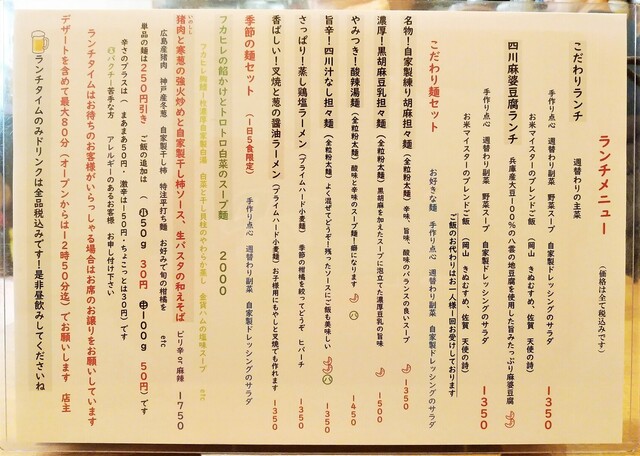 ランチメニュー
(価格は全て税込みです)
こだわりランチ 週替わりの主菜
手作り点心 週替わり副菜 野菜スープ 自家製ドレッシングのサラダ
お米マイスターのブレンドご飯 (岡山 きぬむすめ、佐賀 天使の詩) 1350
四川麻婆豆腐ランチ 兵庫産大豆100%の八雲の地豆腐を使用した旨みたっぷり麻婆豆腐
手作り点心 週替わり副菜 野菜スープ 自家製ドレッシングのサラダ
お米マイスターのブレンドご飯 (岡山 きぬむすめ、佐賀 天使の詩) 1350
ご飯のお代わりはお一人様一回お受けしております
こだわり麺セット お好きな麺 手作り点心 週替わり副菜 自家製ドレッシングのサラダ
名物!自家製練り胡麻担々麺 (全粒粉太麺) 辛味、旨味、酸味のバランスの良いスープ 1350
濃厚!黒胡麻豆乳担々麺 (全粒粉太麺) 黒胡麻を加えたスープに泡立てた濃厚豆乳の旨味 1500
やみつき!酸辣湯麺 (全粒粉太麺) 酸味と辛味のスープ麺!癖になります パ 1450
旨辛!四川汁なし担々麺 (全粒粉太麺) よく混ぜてどうぞ!残ったソースにご飯も美味しい パ 1350
さっぱり!蒸し鶏塩ラーメン (プライムハード小麦麺) 季節の柑橘を絞ってどうぞ ヒバーチ 1350
香ばしい!叉焼と葱の醤油ラーメン (プライムハード小麦麺) お子様用にもやしと叉焼でも作れます 1350
季節の麺セット (1日5食限定) 手作り点心 週替わり副菜 自家製ドレッシングのサラダ
フカヒレの餡かけとトロトロ白菜のスープ麺 2000
フカヒレ胸鰭1枚濃厚自家製白湯 白菜と干し貝柱のやわらか蒸し 金華ハムの塩味スープ etc
猪肉と寒葱の強火炒めと自家製干し柿ソース、生パスタの和えそば ピリ辛or麻辣 1750
いのしし
広島産猪肉 神戸産冬葱 自家製干し柿 特注平打ち麺 お好みで旬の柑橘を etc
単品の麺は250円引き ご飯の追加は (小)50g 30円 (中)100g 50円)です
辛さのプラスは( まあまあ50円・激辛は150円・ちょこっとは30円)です
パクチー苦手な方 アレルギーのあるお客様 お申し付け下さい
ランチタイムはお待ちのお客様がいらっしゃる場合はお席のお譲りをお願いしています
デザートを含めて最大80分(オープンからは12時50分迄)でお願いします 店主
ランチタイムのみドリンクは全品税込みです!是非昼飲みしてくださいね